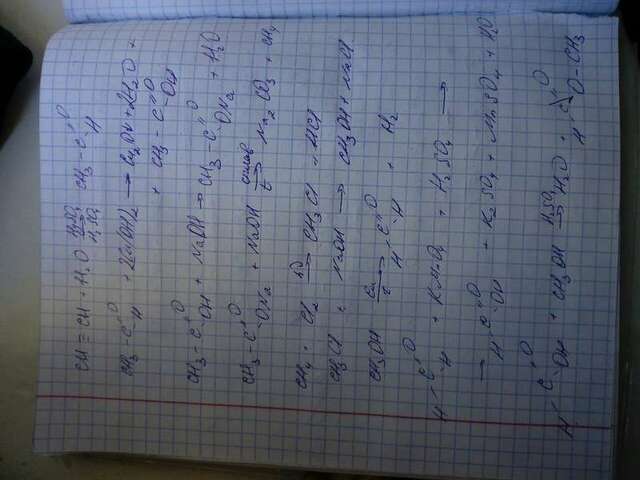 CH≡CH + H₂O →(HgSO₄, H₂SO₄) CH₃-C(=O)H
CH₃-C(=O)H + 2Cu(OH)₂ → Cu₂O + 2H₂O +
+ CH₃-C(=O)OH
CH₃-C(=O)OH + NaOH → CH₃-C(=O)ONa + H₂O
CH₃-C(=O)ONa + NaOH →(сплав, t) Na₂CO₃ + CH₄
CH₄ + Cl₂ → CH₃Cl + HCl
CH₃Cl + NaOH → CH₃OH + NaCl
CH₃OH →(Cu, t) H-C(=O)H + H₂
H-C(=O)H + KMnO₄ + H₂SO₄ →
→ H-C(=O)OH + K₂SO₄ + MnSO₄ + H₂O
H-C(=O)OH + CH₃OH →(H₂SO₄) H₂O + H-C(=O)O-CH₃